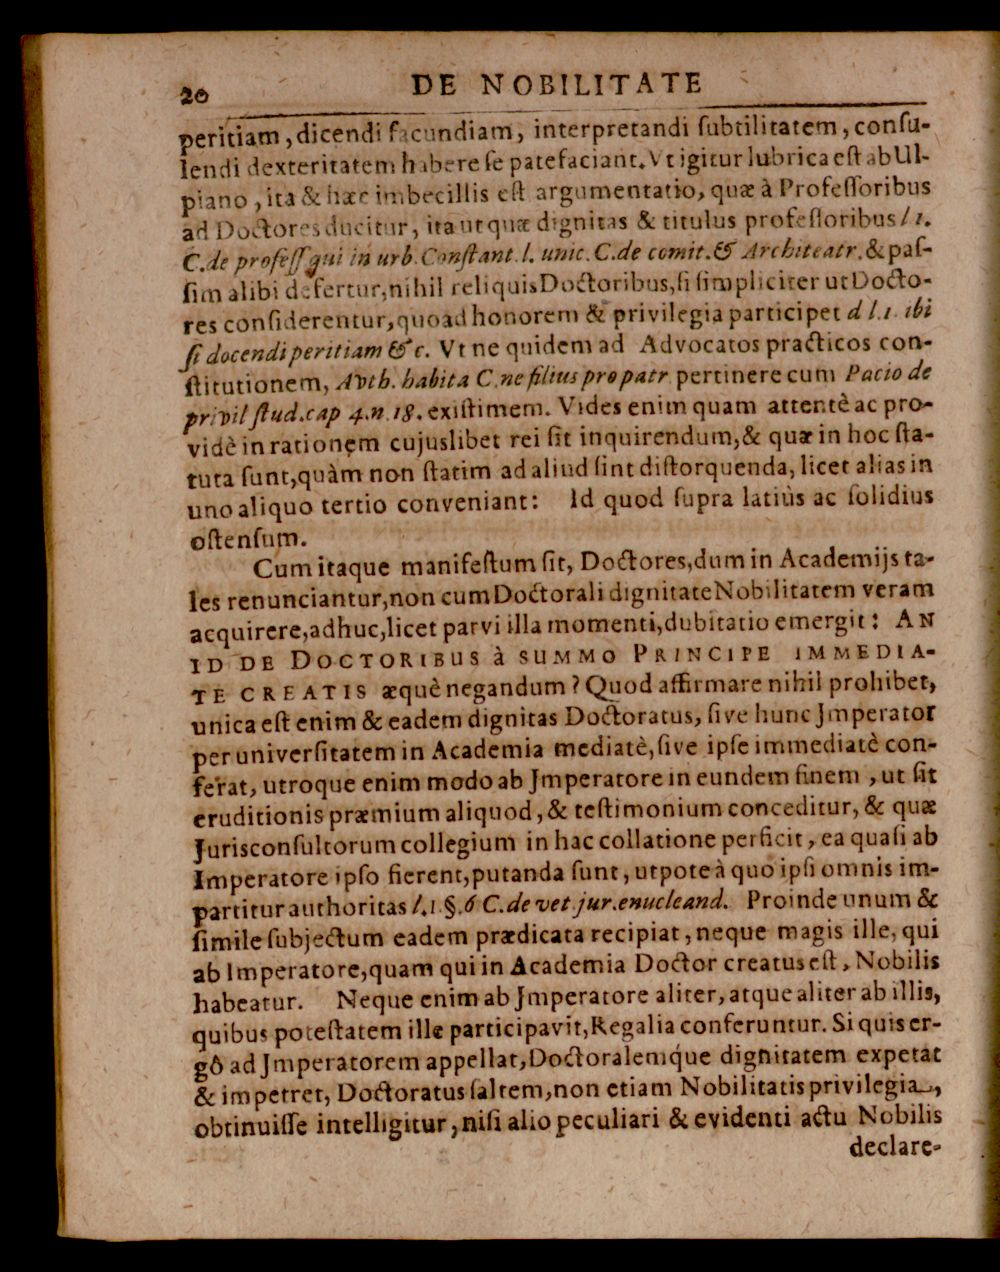 20 DE NOBILITATE
peritiam, dicendi facundiam, interpretandi ſubtilitatem, conſu-
lendi dexteritatem habere ſe patefaciant. Vt igitur lubrica eſt ab Ul-
piano, ita & hæc imbecillis eſt argumentatio, quæ à Profeſſoribus
ad Doctores ducitur, ita ut quæ dignitas & titulus profeſſoribus l 1.
C. de profeſſ. qui in urb. Conſtant. l. unic. C. de comit. & Architeatr. & paſ-
ſim alibi defertur, nihil reliquis Doctoribus, ſi ſimpliciter ut Docto-
res conſiderentur, quoad honorem & privilegia participet d l. 1. ibi
ſi docendi peritiam & c. Vt ne quidem ad Advocatos practicos con-
ſtitutionem, Avth. habita C. ne filius pro patr. pertinere cum Pacio de
privil ſtud. cap 4. n. 18. exiſtimem. Vides enim quam attentè ac pro-
vidè in rationem cujuslibet rei ſit inquirendum, & quæ in hoc ſta-
tuta ſunt, quàm non ſtatim ad aliud ſint diſtorquenda, licet alias in
uno aliquo tertio conveniant: Id quod ſupra latiùs ac ſolidius
oſtenſum.
Cum itaque manifeſtum ſit, Doctores, dum in Academijs ta-
les renunciantur, non cum Doctorali dignitate Nobilitatem veram
acquirere, adhuc, licet parvi illa momenti, dubitatio emergit: AN
ID DE DOCTORIBUS à SUMMO PRINCIPE IMMEDIA-
TE CREATIS æquè negandum? Quod affirmare nihil prohibet,
unica eſt enim & eadem dignitas Doctoratus, ſive hunc Jmperator
per univerſitatem in Academia mediatè, ſive ipſe immediatè con-
ferat, utroque enim modo ab Jmperatore in eundem finem, ut ſit
eruditionis præmium aliquod, & teſtimonium conceditur, & quæ
Jurisconſultorum collegium in hac collatione perficit, ea quaſi ab
Imperatore ipſo fierent, putanda ſunt, utpote à quo ipſi omnis im-
partitur authoritas l. 1 §. 6 C. de vet jur. enucleand. Proinde unum &
ſimile ſubjectum eadem prædicata recipiat, neque magis ille, qui
ab Imperatore, quam qui in Academia Doctor creatus eſt, Nobilis
habeatur. Neque enim ab Jmperatore aliter, atque aliter ab illis,
quibus poteſtatem ille participavit, Regalia conferuntur. Si quis er-
gò ad Jmperatorem appellat, Doctoralemq́ue dignitatem expetat
& impetret, Doctoratus ſaltem, non etiam Nobilitatis privilegia,
obtinuiſſe intelligitur, niſi alio peculiari & evidenti actu Nobilis
declare-